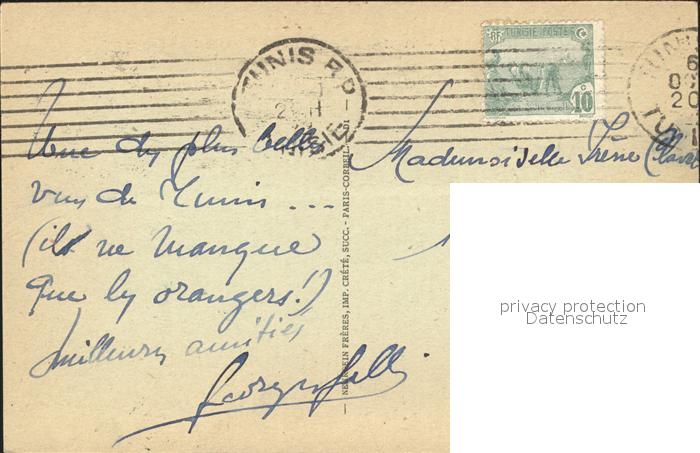 TUNIS R.P
TUNISIE POSTES
RF
10
c
TUNIS
Une des plus belles
vues de Tunis ...
(il ne manque
que les orangers!)
meilleures amitiés
Mademoiselle Irène
— NEURDEIN FRÈRES, IMP. CRÉTÉ, SUCC. - PARIS-CORBEIL
privacy protection
Datenschutz